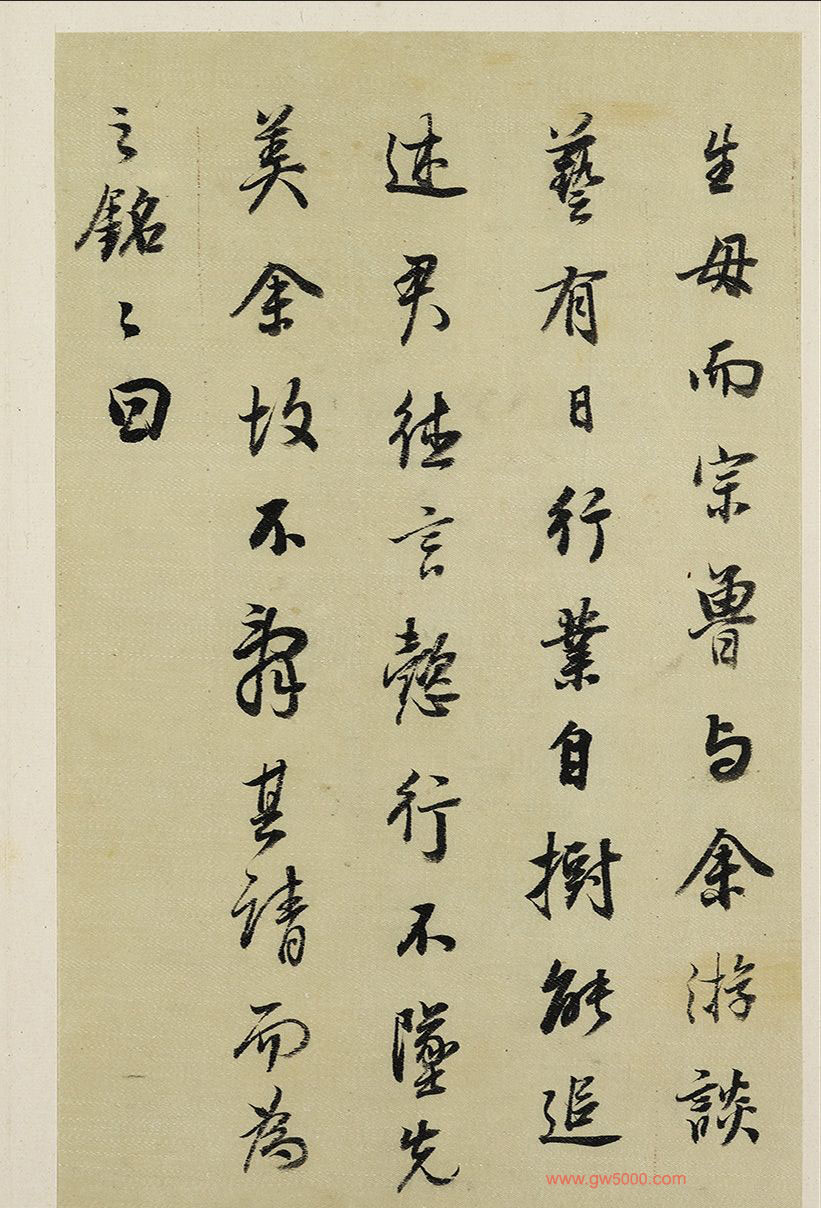 生母而宗魯与余游談
藝有日行業自樹能追
述君德言懿行不墜先
美余故不辭其請而為
之銘〻曰
www.gw5000.com